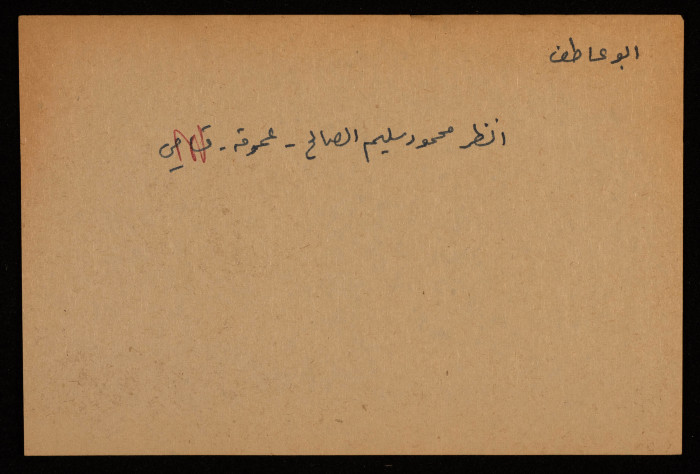 ابو عاطف
انظر محمود سليم الصالح - عموقه -